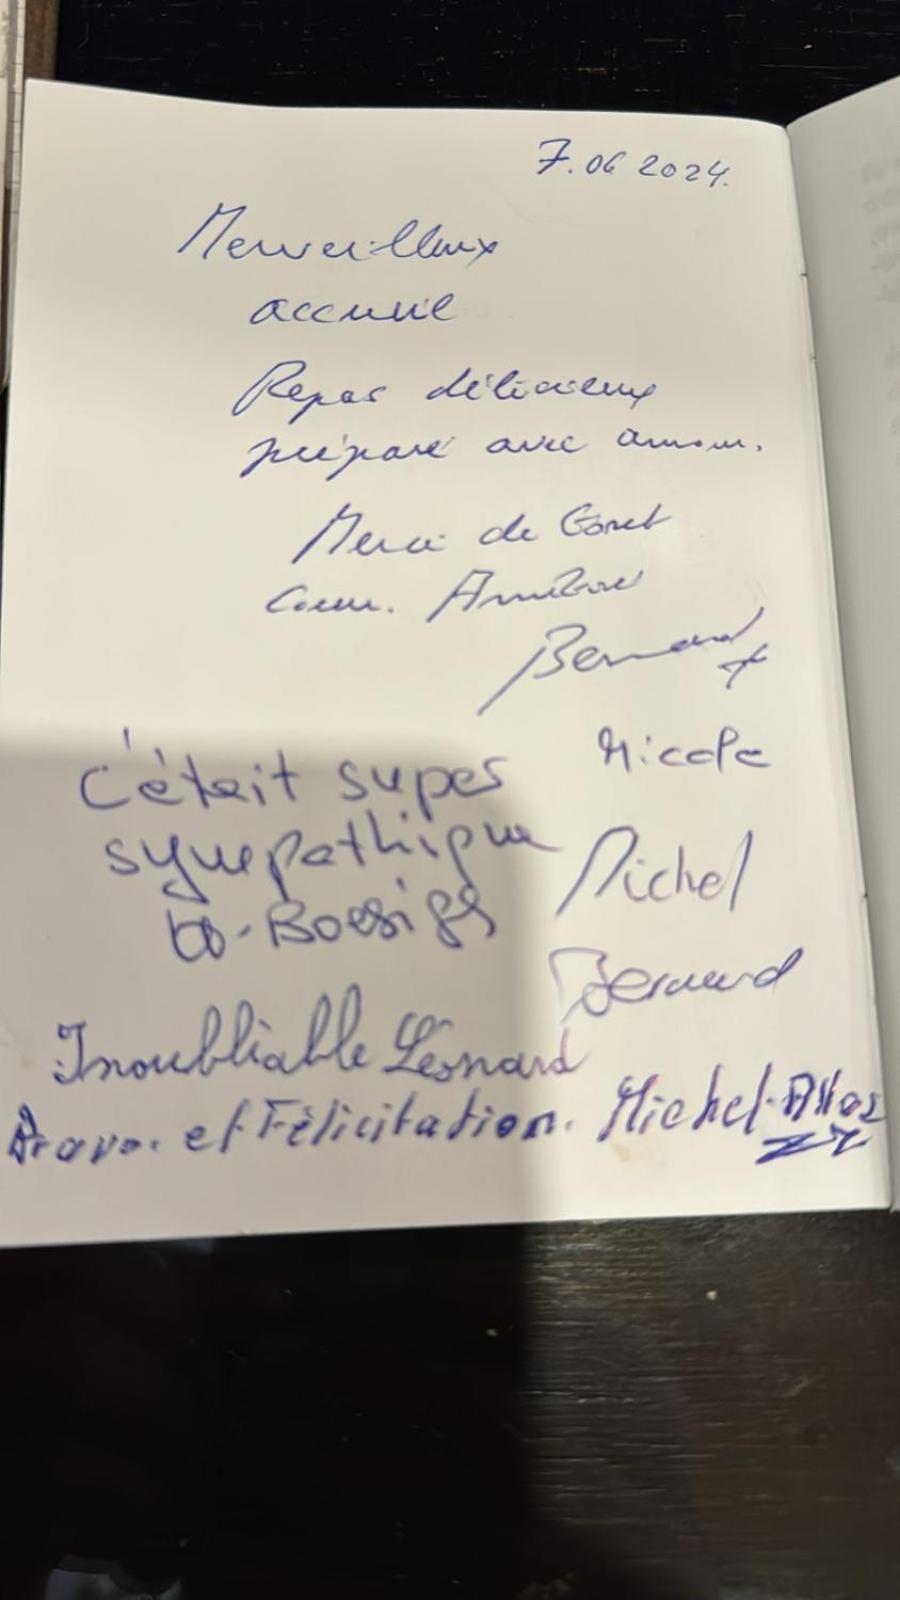 7.06 2024.
Merveilleux
accueil
Repas délicieux
préparé avec amour.
Merci de tout
Coeur.
Bernard
Nicole
C'était super
sympathique
Michel
Bernard
Inoubliable Léonard
Bravo. et Félicitation. Michel